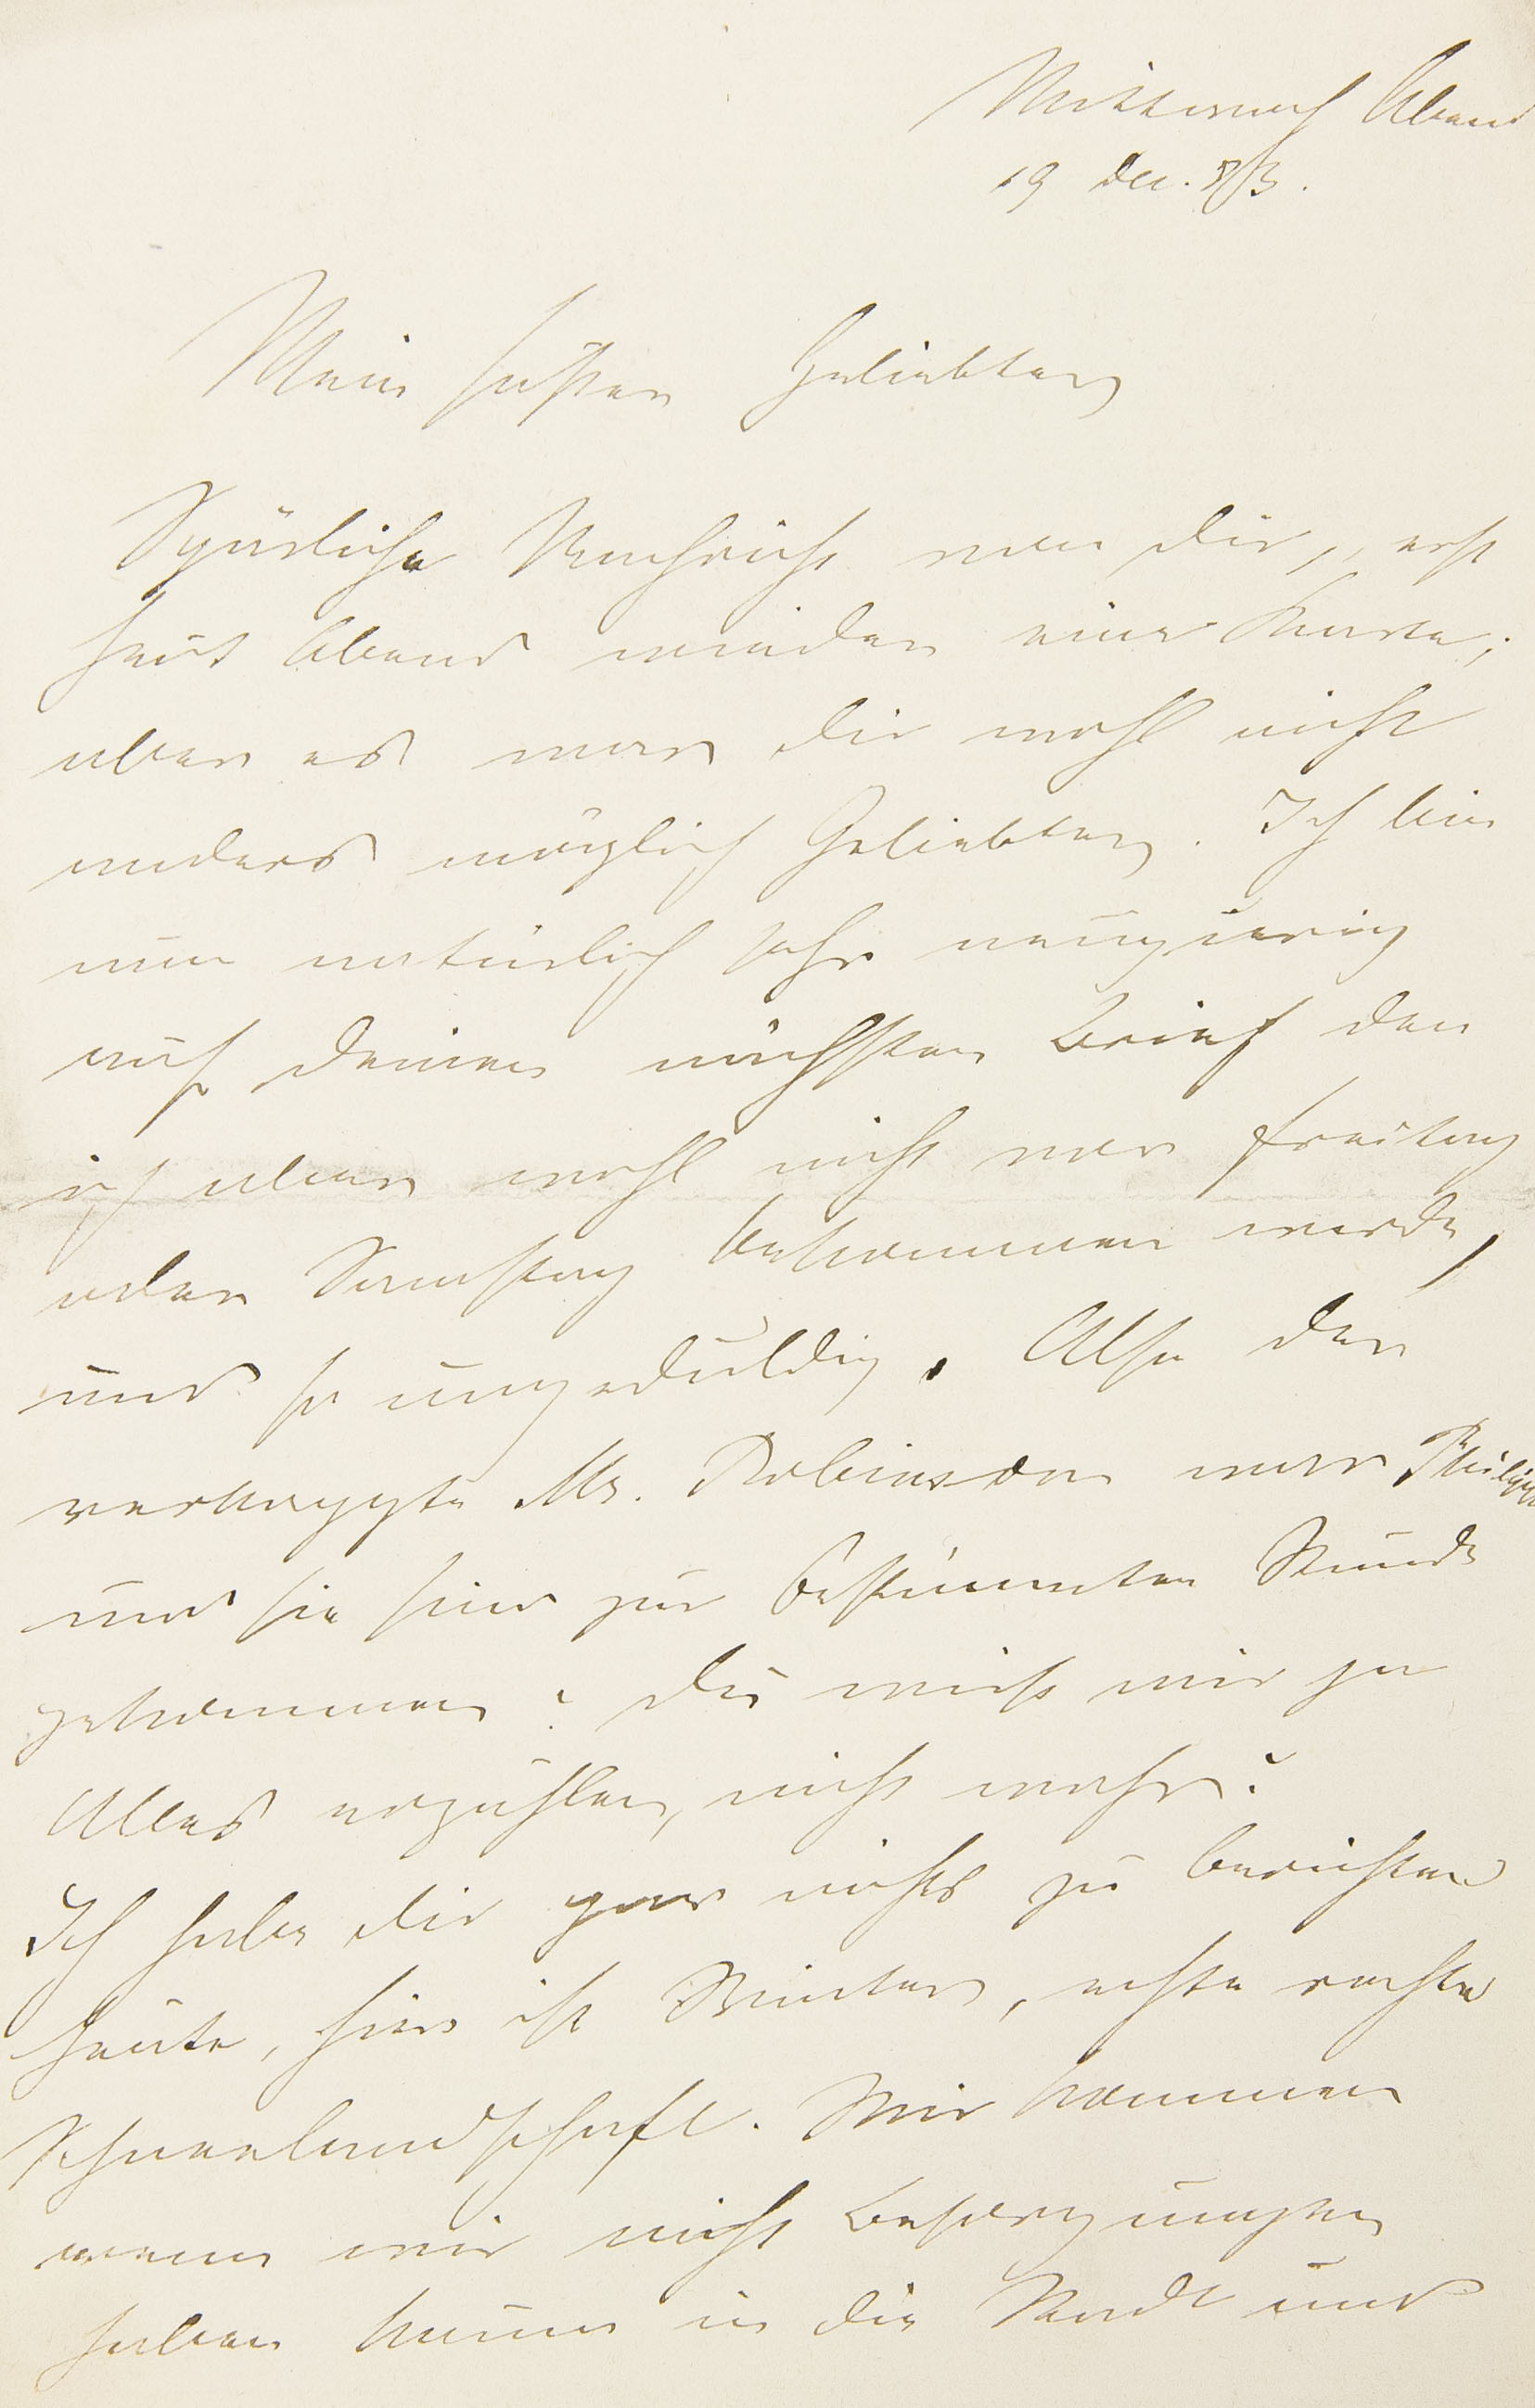 Mittwoch Abend
19 Dec. 83.
Mein süßer Geliebter
Spärliche Nachricht von Dir, erst
heut Abend wieder eine Karte,
aber es war Dir wohl nicht
anders möglich Geliebter. Ich bin
nun natürlich sehr neugierig
auf Deinen nächsten Brief den
ich aber wohl nicht vor Freitag
oder Samstag bekommen werde,
und so ungeduldig. Also der
verkappte Mr. Robinson war Philipp
und sie sind zur bestimmten Stunde
gekommen? Du wirst mir ja
Alles erzählen, nicht wahr?
Ich habe Dir gar nichts zu berichten
heute, hier ist Winter, echte rechte
Schneelandschaft. Wir kommen
wenn wir nicht Besorgungen
haben kaum in die Stadt und